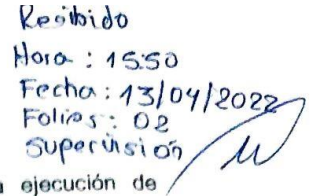 Recibido
Hora: 1550
Fecha: 13/04/2022
Folios: 02
Supervisión
ejecución de